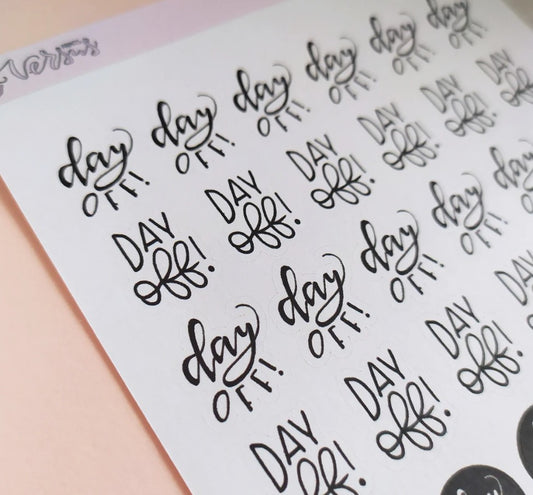 Versus
day day day day day day
OFF! OFF! OFF! OFF! OFF! OFF!
DAY DAY DAY DAY DAY DAY
off! off! off! off! off! off!
day day day day
OFF! OFF! OFF! OFF!
DAY DAY DAY
off! off! off!